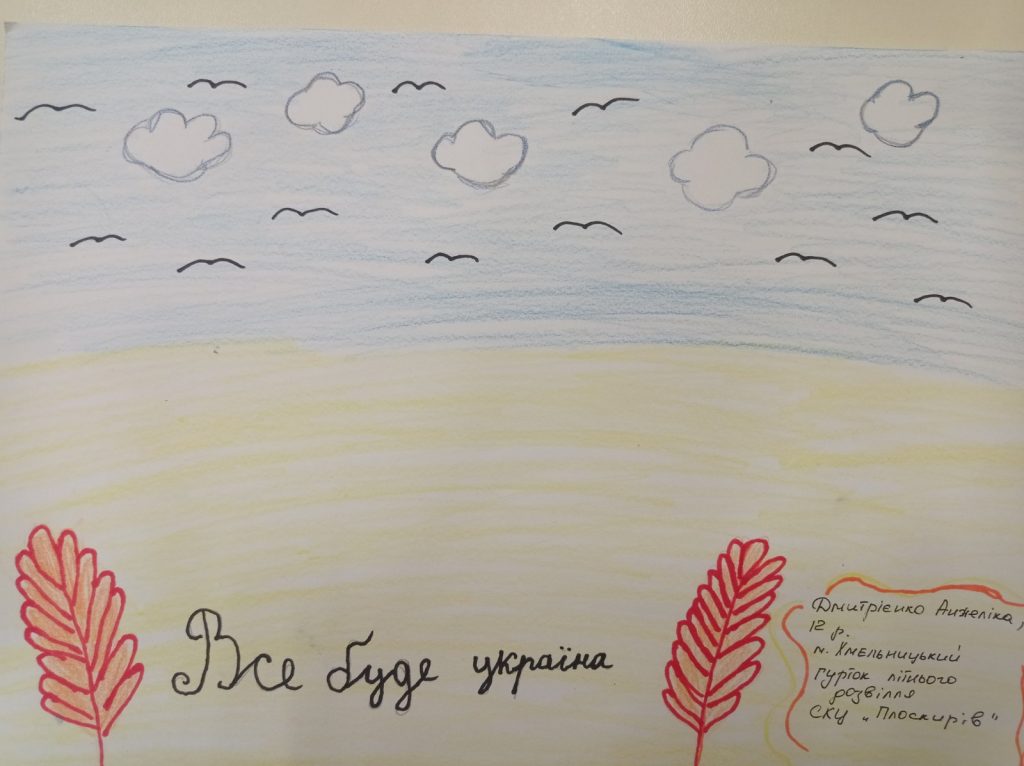 Все буде україна
Дмитрієнко Анжеліка,
12 р.
м. Хмельницький
гурток літнього
розвілля
СКЦ „Плоскирів"